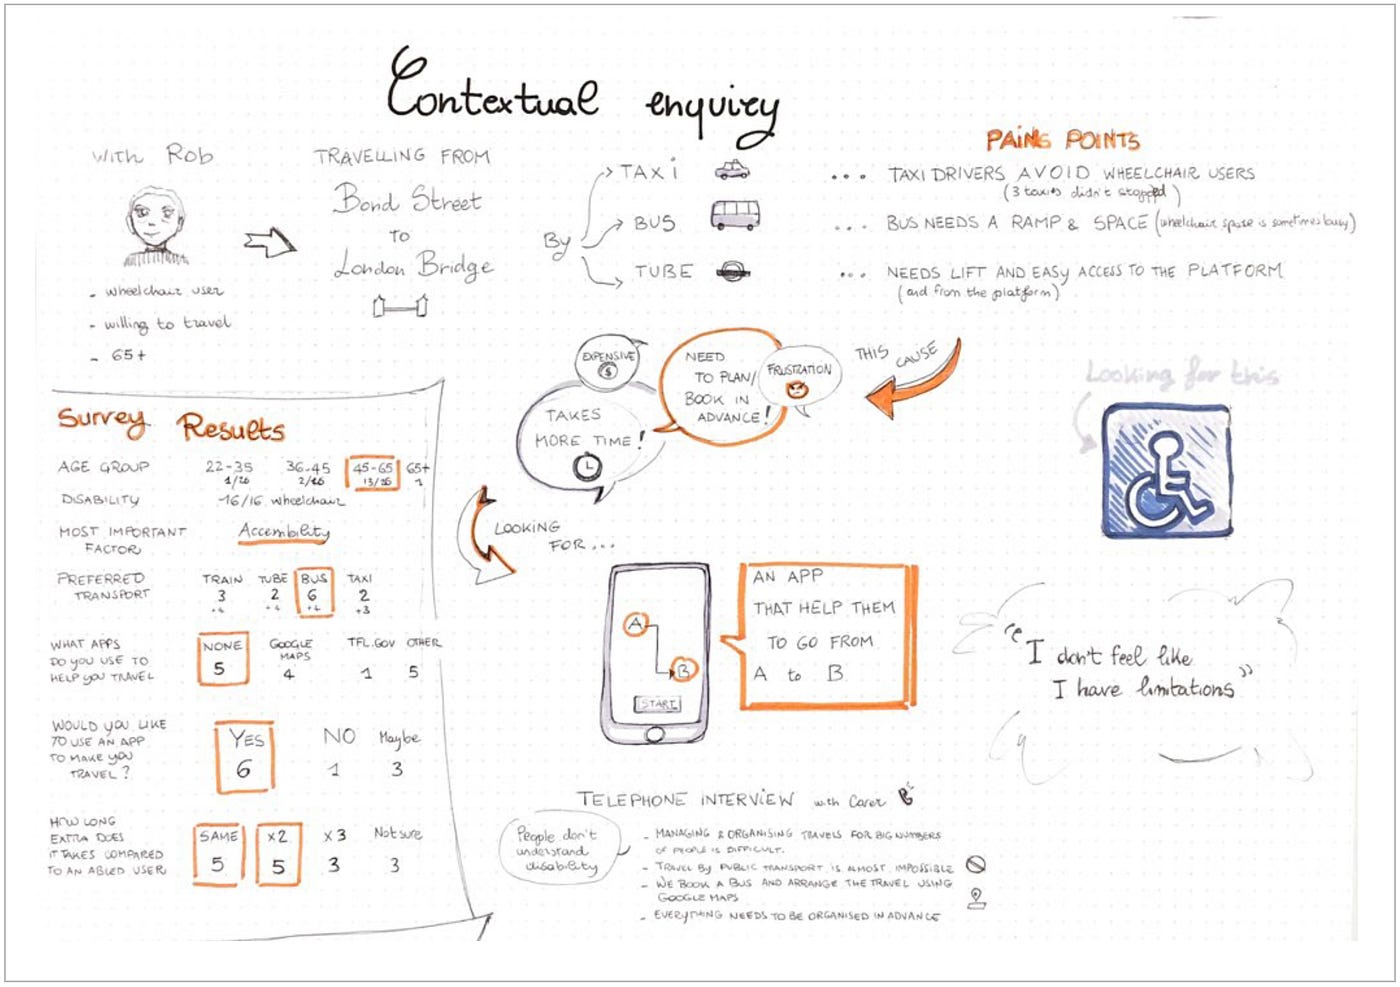 Contextual enquiry
with Rob
- wheelchair user
- willing to travel
- 65+
TRAVELLING FROM
Bond Street
to
London Bridge
By
TAXI
BUS
TUBE
PAINS POINTS
... TAXI DRIVERS AVOID WHEELCHAIR USERS
(3 taxis didn't stopped)
... BUS NEEDS A RAMP & SPACE (wheelchair space is sometimes busy)
... NEEDS LIFT AND EASY ACCESS TO THE PLATFORM
(and from the platform)
THIS CAUSE
EXPENSIVE
$
TAKES
MORE TIME!
NEED
TO PLAN/
BOOK IN
ADVANCE!
FRUSTRATION
Looking for this
LOOKING
FOR...
A
B
START
AN APP
THAT HELP THEM
TO GO FROM
A to B
"I don't feel like
I have limitations"
Survey Results
AGE GROUP 22-35 36-45 45-65 65+
1/16 2/16 13/16 1
DISABILITY 16/16 wheelchair
MOST IMPORTANT
FACTOR
Accessibility
PREFERRED
TRANSPORT
TRAIN TUBE BUS TAXI
3 2 6 2
+4 +4 +4 +3
WHAT APPS
DO YOU USE TO
HELP YOU TRAVEL
NONE GOOGLE MAPS TFL.GOV OTHER
5 4 1 5
WOULD YOU LIKE
TO USE AN APP
TO MAKE YOU
TRAVEL?
YES NO Maybe
6 1 3
HOW LONG
EXTRA DOES
IT TAKES COMPARED
TO AN ABLED USER
SAME x2 x3 Not sure
5 5 3 3
TELEPHONE INTERVIEW with Carer
People don't
understand
disability
- MANAGING & ORGANISING TRAVELS FOR BIG NUMBERS
OF PEOPLE IS DIFFICULT.
- TRAVEL BY PUBLIC TRANSPORT IS ALMOST IMPOSSIBLE
- WE BOOK A BUS AND ARRANGE THE TRAVEL USING
GOOGLE MAPS
- EVERYTHING NEEDS TO BE ORGANISED IN ADVANCE